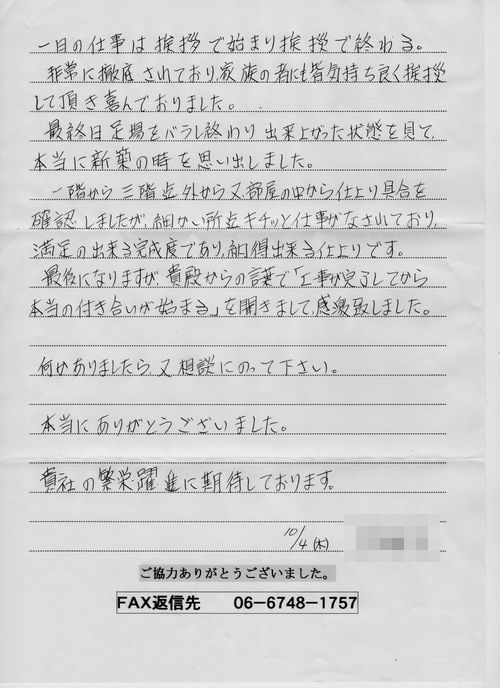 一日の仕事は挨拶で始まり挨拶で終わる。
非常に徹底されており、家族の者にも皆気持ち良く挨拶
して頂き喜んでおりました。
最終日足場をバラし終わり出来上がった状態を見て、
本当に新築の時を思い出しました。
一階から三階迄外から又部屋の中から仕上り具合を
確認しましたが、細かい所迄キチッと仕事がなされており、
満足の出来る完成度であり、納得出来る仕上りです。
最後になりますが、貴殿からの言葉で「工事が完了してから
本当の付き合いが始まる。」を聞きまして、感激致しました。
何かありましたら、又相談にのって下さい。
本当にありがとうございました。
貴社の繁栄躍進に期待しております。
10/4(木)
ご協力ありがとうございました。
FAX返信先 06-6748-1757